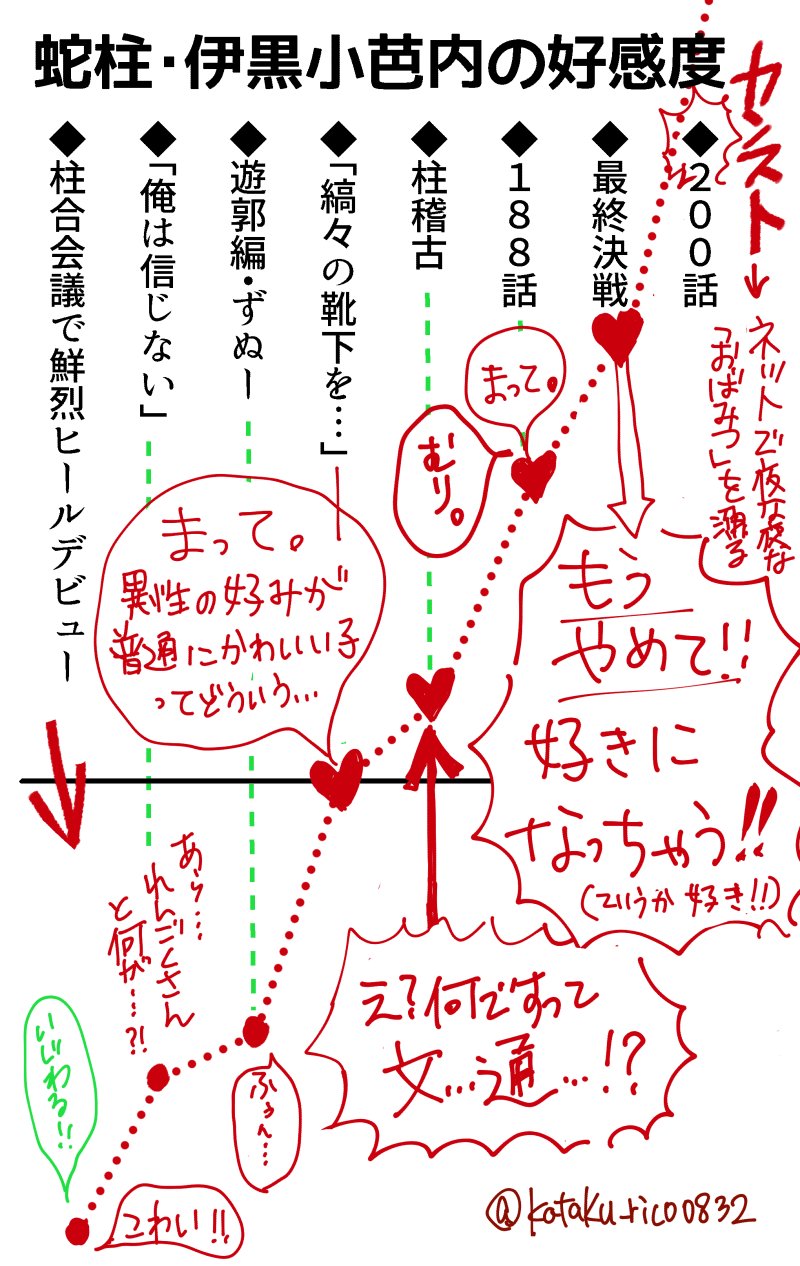 蛇柱・伊黒小芭内の好感度
カンスト→
ネットで夜な夜な
「おばみつ」を漁る
◆２００話
◆最終決戦
◆１８８話
◆柱稽古
◆「縞々の靴下を…」
◆遊郭編・ずぬー
◆「俺は信じない」
◆柱合会議で鮮烈ヒールデビュー
まって。
むり。
もう
やめて!!
好きに
なっちゃう!!
(ていうか好き!!)
まって。
異性の好みが
普通にかわいい子
ってどういう…
え?何ですって
文…通…!?
あら…
れんごくさん
と何が…?!
ふぅん…
いじわる!!
こわい!!
@kotaku_rico0832